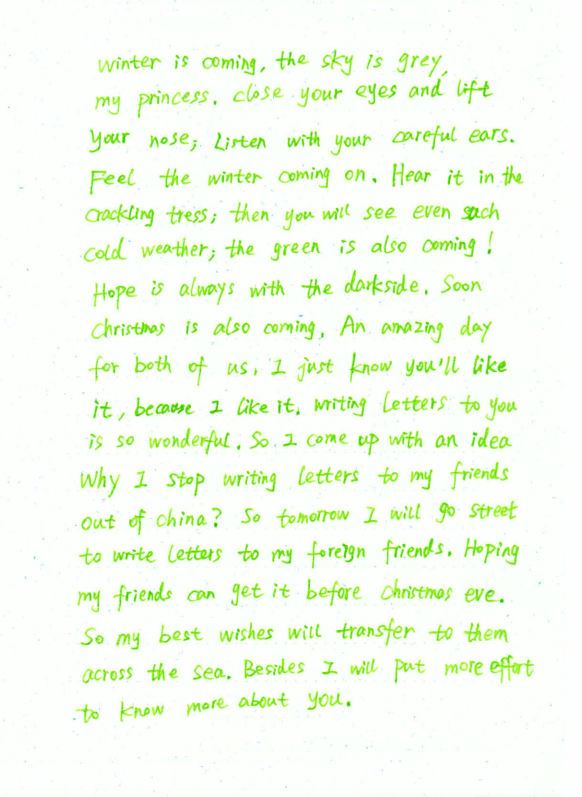 winter is coming, the sky is grey,
my princess. close your eyes and lift
your nose; Listen with your careful ears.
Feel the winter coming on. Hear it in the
crackling tress; then you will see even such
cold weather; the green is also coming!
Hope is always with the darkside. Soon
christmas is also coming. An amazing day
for both of us. I just know you'll like
it, because I like it. writing letters to you
is so wonderful. So I come up with an idea
Why I stop writing letters to my friends
out of china? So tomorrow I will go street
to write letters to my foreign friends. Hoping
my friends can get it before christmas eve.
So my best wishes will transfer to them
across the sea. Besides I will put more effort
to know more about you.